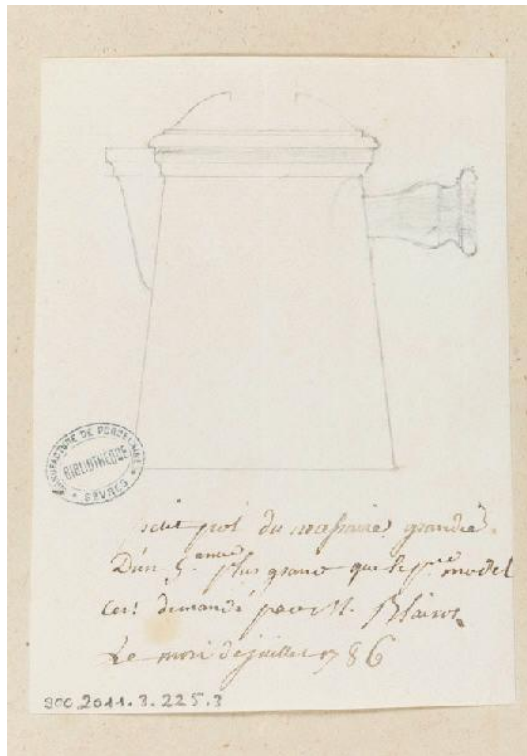 MANUFACTURE DE PORCELAINE
BIBLIOTHEQUE
* SÈVRES *
petit pot du grandie
D'un 5.eme plus grand que le p.er model
demandé par M.
Le mois de juillet 1786
SCC.2011.3.225.3